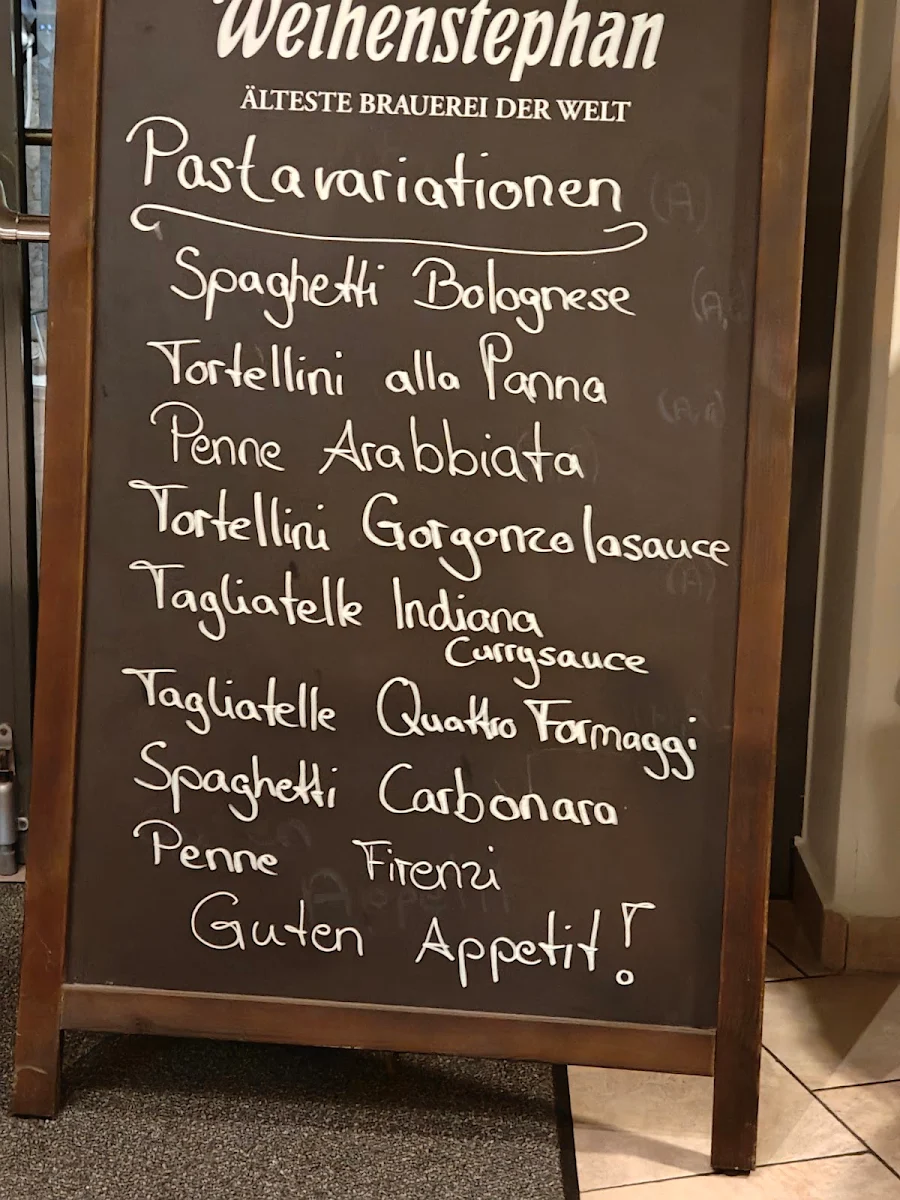 Weihenstephan
ÄLTESTE BRAUEREI DER WELT
Pastavariationen
Spaghetti Bolognese
Tortellini alla Panna
Penne Arabbiata
Tortellini Gorgonzolasauce
Tagliatelle Indiana
Currysauce
Tagliatelle Quattro Formaggi
Spaghetti Carbonara
Penne Firenzi
Guten Appetit!